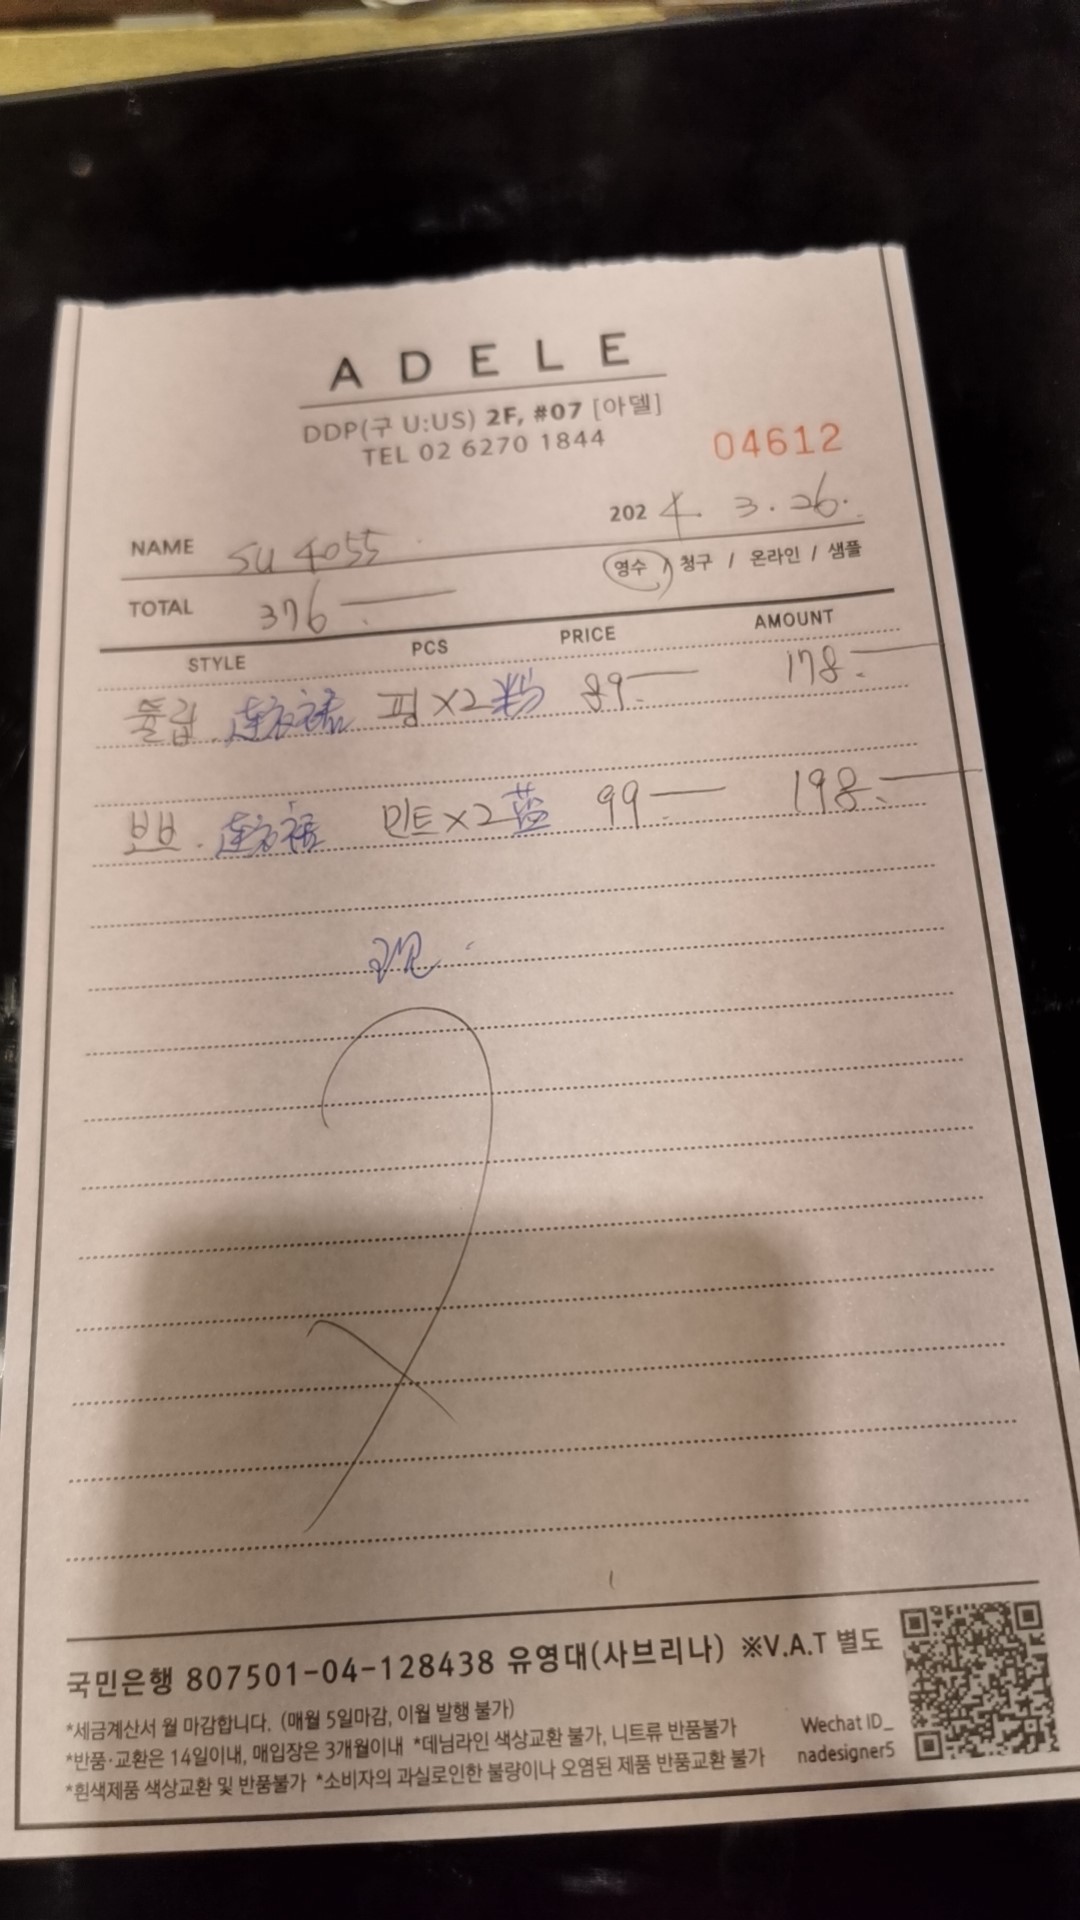 ADELE
DDP(구 U:US) 2F, #07 [아델]
TEL 02 6270 1844
04612
2024. 3. 26.
NAME SU 4055
영수 / 청구 / 온라인 / 샘플
TOTAL 376.—
STYLE PCS PRICE AMOUNT
튤립. 连衣裙 핑X2 粉 89.— 178.—
보브. 连衣裙 민트X2 蓝 99.— 198.—
국민은행 807501-04-128438 유영대(사브리나) ※V.A.T 별도
*세금계산서 월 마감합니다. (매월 5일마감, 이월 발행 불가)
*반품·교환은 14일이내, 매입장은 3개월이내 *데님라인 색상교환 불가, 니트류 반품불가
*흰색제품 색상교환 및 반품불가 *소비자의 과실로인한 불량이나 오염된 제품 반품교환 불가
Wechat ID_
nadesigner5